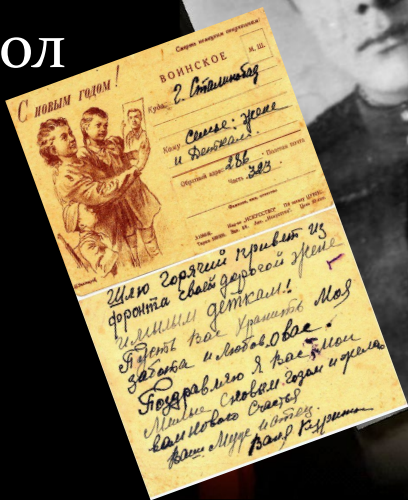 ол
Смерть немецким оккупантам!
С НОВЫМ ГОДОМ!
ВОИНСКОЕ
М. Ш.
Куда: г. Сталинабад
Кому Семье: жене
и Деткам.
Обратный адрес: 286 Полевая почта
Часть 323
Шлю горячий привет из
фронта своей дорогой жене
и милым деткам!
Пусть Вас хранить Моя
забота и любовь о вас.
Поздравляю я Вас мои
Милые с новым годом и желаю
вам Нового счастья
Ваш Муж и отец.
Ваня